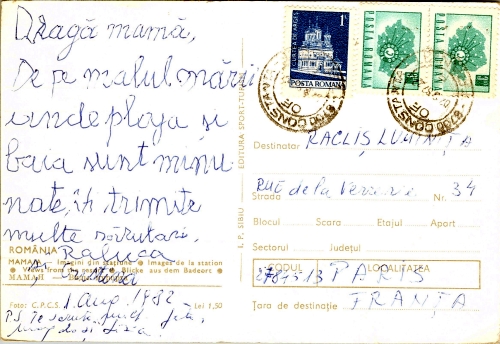 Dragă mamă,
De pe malul mării
unde plaja și
baia sunt minu
nate, îți trimite
multe sărutări.
Raluca
1 Aug 1982
P.S. Te
ROMÂNIA
MAMAIA — Imagini din stațiune • Images de la station
• Views from the resort • Blicke aus dem Badeort •
Foto: C.P.C.S.
Lei 1,50
EDITURA SPORT-TURISM
I. P. SIBIU
POSTA ROMANA
POSTA ROMANA
POSTA ROMANA
CONSTANȚA
Destinatar RACLIȘ LUMINIȚA
Strada Rue de la Verrerie Nr. 34
Blocul Scara Etajul Apart
Sectorul Județul
CODUL LOCALITATEA
PARIS
Țara de destinație FRANȚA